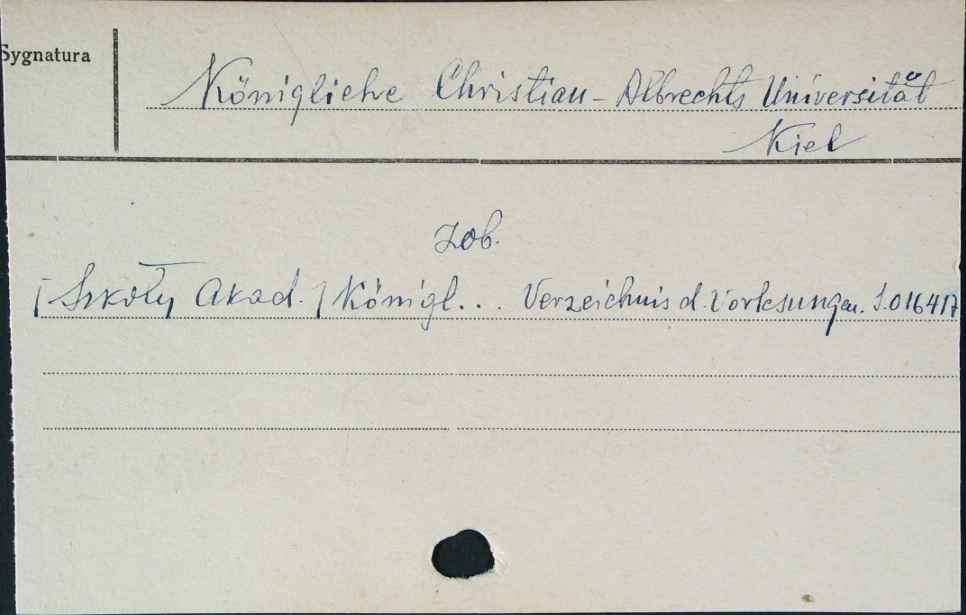 Sygnatura
Königliche Christian-Albrechts Universität
Kiel
Zob.
[Szkoły Akad.] Königl... Verzeichnis d. Vorlesungen. S.016417